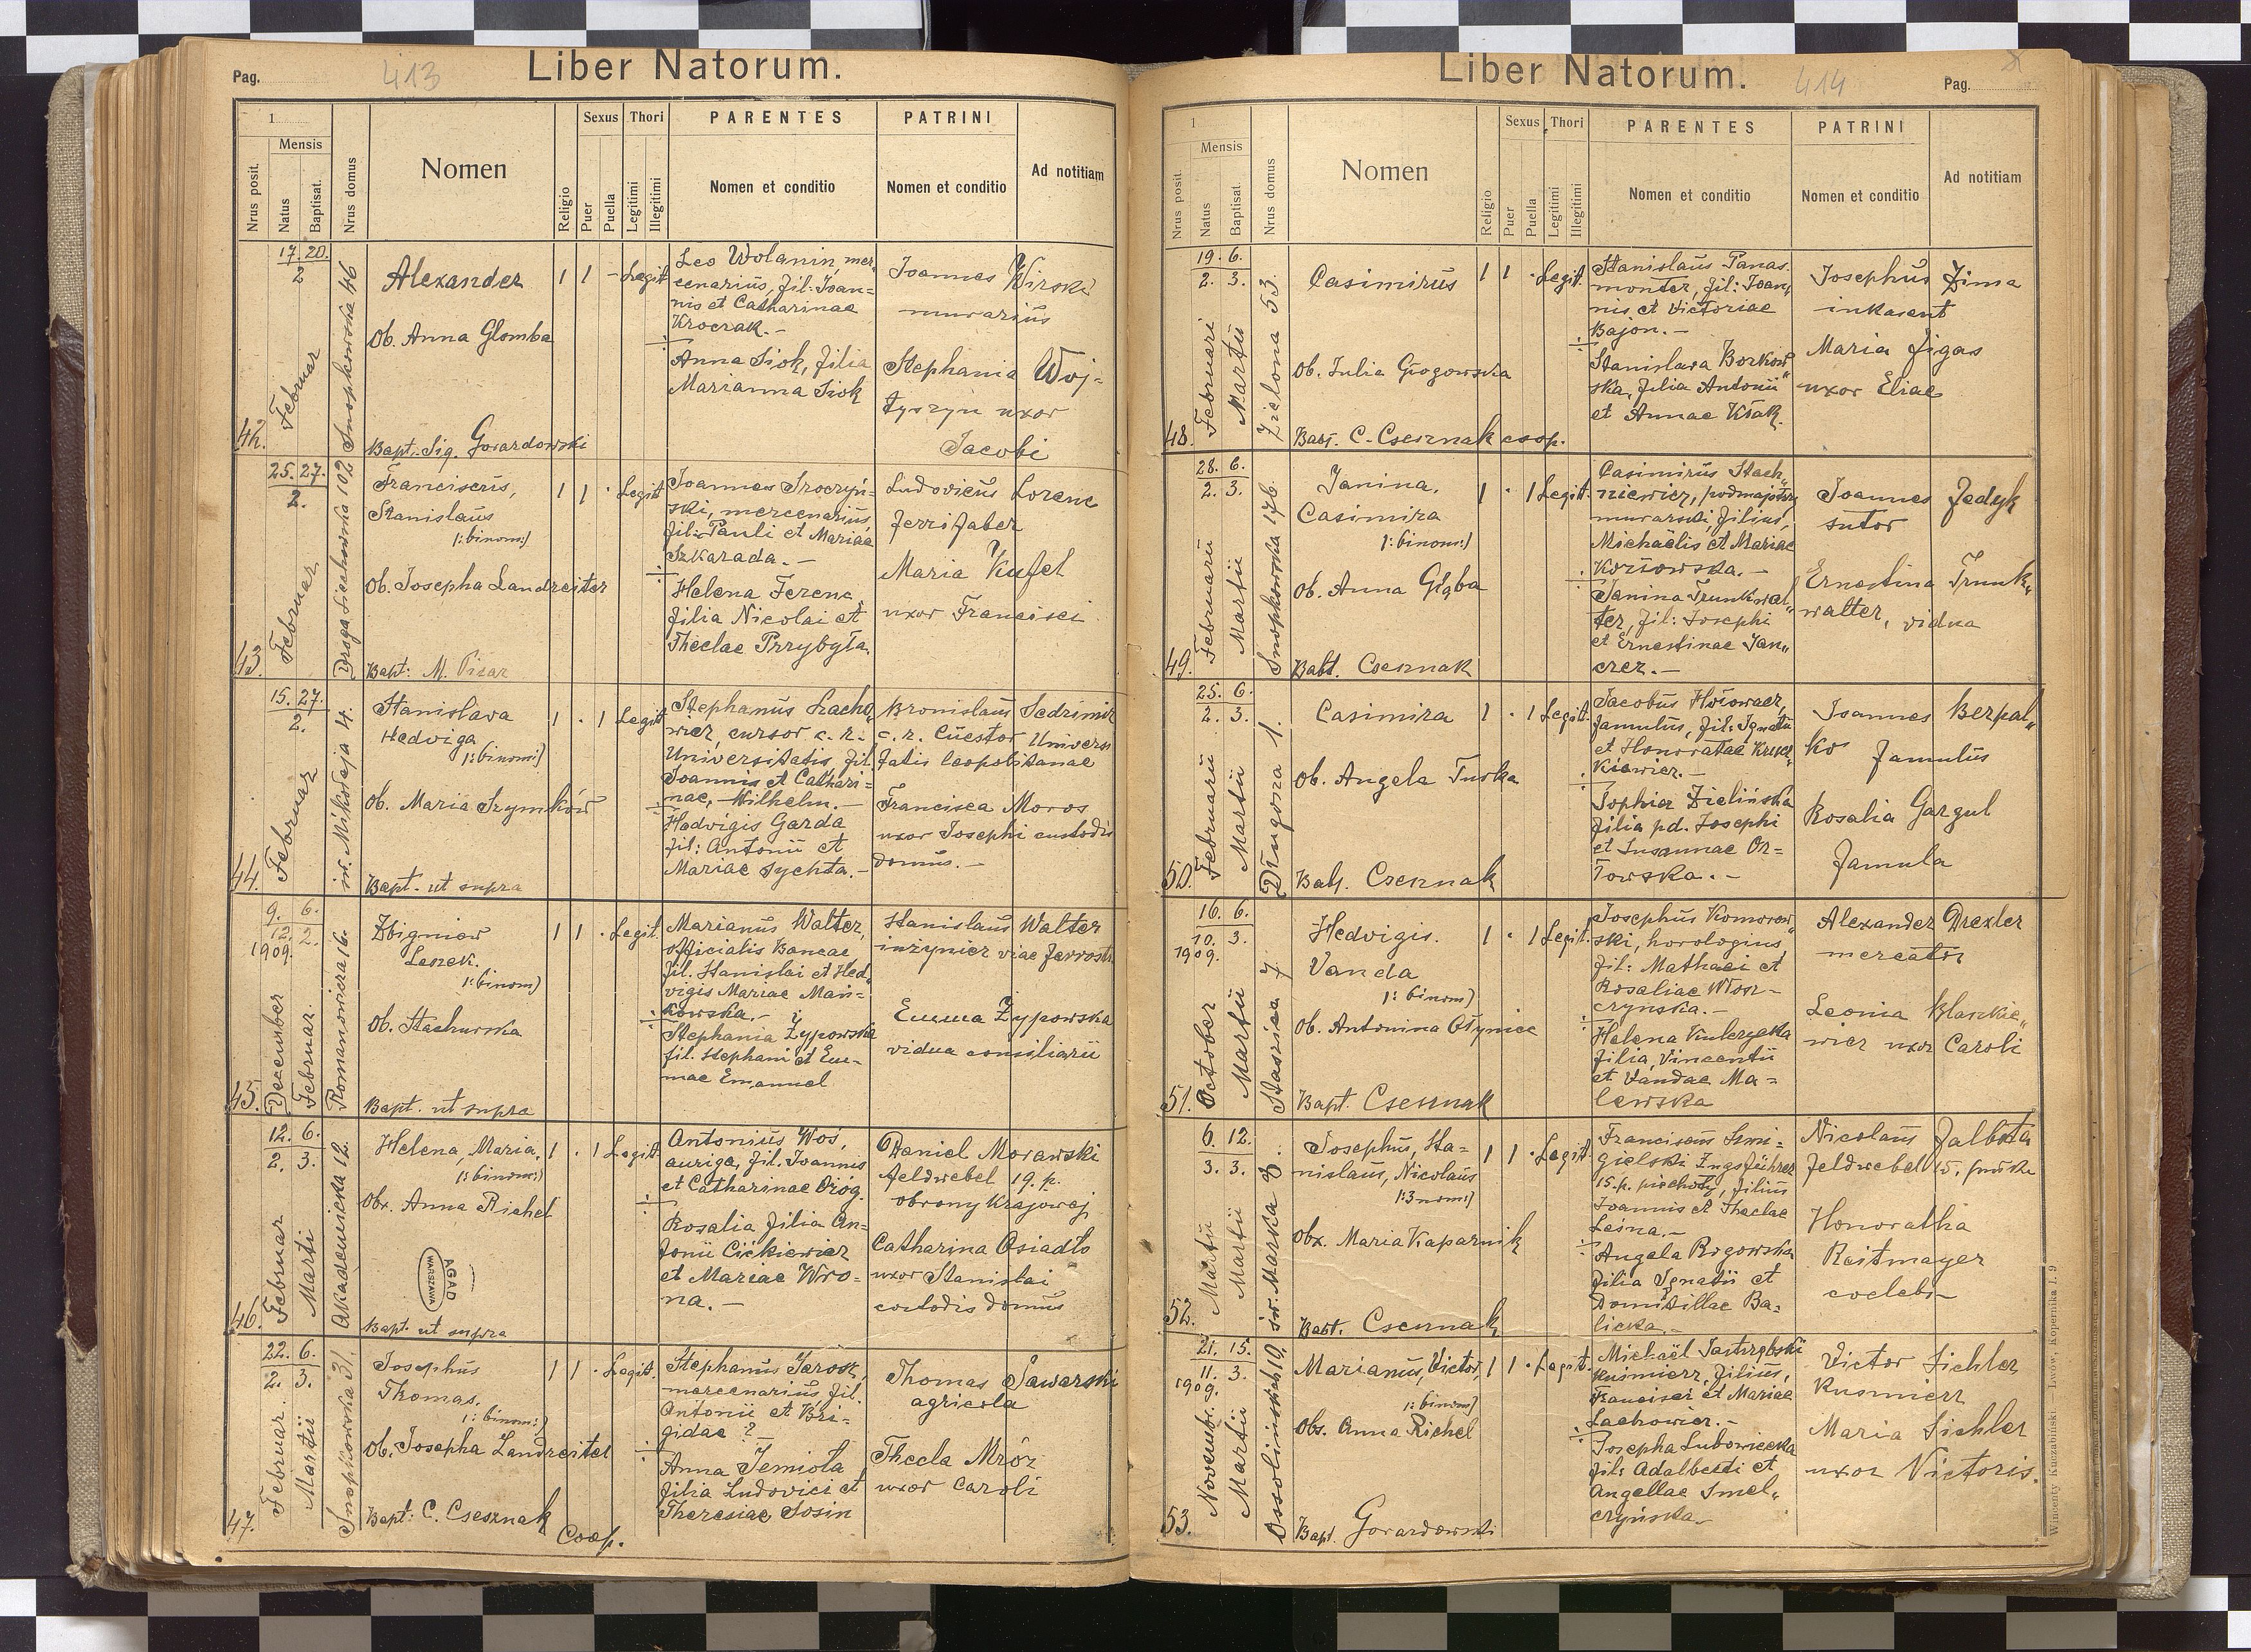 Pag.
413
Liber Natorum.
1
Mensis
Sexus
Thori
PARENTES
PATRINI
Nrus posit.
Natus
Baptisat.
Nrus domus
Nomen
Religio
Puer
Puella
Legitimi
Illegitimi
Nomen et conditio
Nomen et conditio
Ad notitiam
42.
17. 20.
2
Februar
Snopkowska 46
Alexander
Ob. Anna Glomba
Bapt. Sig. Gorardowski
1 1 - Legit
Leo Wolanin, mer„
cenarius, fil: Joan=
nis et Catharinae
Kroczak.-
Anna Siok, filia
Marianna Siok
Joannes Wirski
murarius
Stephania Woj=
tyszyn uxor
Jacobi
43.
25. 27.
2.
Februar
Droga Siechowska 102
Franciscus,
Stanislaus
1:binom:)
Ob. Josepha Landreiter
Bapt: M. Pisar
1 1 . Legit
Joannes Sroczyń=
ski, mercenarius,
fil: Pauli et Mariae
Szkarada.-
Helena Ferenc,
filia Nicolai et
Theclae Przybyła.
Ludovicus Lorenc
ferri faber
Maria Kufel
uxor Francisci
44.
15. 27.
2.
Februar
św. Mikołaja 4.
Stanislava
Hedviga
1:binom:)
Ob. Maria Szymków
Bapt. ut supra
1 . 1 Legit
Stephanus Lacho„
wicz, cursor c. r.
Universitatis, fil.
Joannis et Cathari=
nae, Wilhelm.-
Hedvigis Garda
fil: Antonii et
Mariae Sychta.-
Bronislaus Sedzimir
c. r. Cuestor Universi
tatis leopolitanae
Francisca Moros
uxor Josephi custodis
domus.-
45.
9. 6.
12. 2.
1909.
Dezember
Februar.
Romanowicza 16.
Zbigniew
Leszek.
1:binom)
Ob. Stachurska
Bapt. ut supra
1 1 . Legit.
Marianus Walter,
officialis Bancae
fil. Stanislai et Hed„
vigis Mariae Mań=
kowska.-
Stephania Żypowska
fil. Stephani et Em=
mae Emanuel
Stanislaus Walter
inżynier viae ferrostr.
Emma Żypowska
vidua consiliarii
46.
12. 6.
2. 3.
Februar
Marti
Akademicka 12.
Helena, Maria,
1:binom:)
Obx. Anna Richel
AGAD
WARSZAWA
Bapt. ut supra
1 . 1 Legit
Antonius Woś,
auriga, fil. Joannis
et Catharinae Ożóg.
Rosalia filia An=
tonii Cićkiewicz
et Mariae Wro=
na.-
Daniel Morawski
feldwebel 19. p.
obrony Krajowej
Catharina Osiadło
uxor Stanislai
custodis domus
47.
22. 6.
2. 3.
Februar.
Martii
Snopkowska 31.
Josephus
Thomas.
1:binom:)
Ob. Josepha Landreiter
Bapt: C. Csesznak
Coop.
1 1 . Legit.
Stephanus Jarosz,
mercenarius, fil.
Antonii et Bri=
gidae ?
Anna Jemioła
filia Ludovici et
Theresiae Sosin
Thomas Sawarski
agricola
Thecla Mróz
uxor Caroli
Liber Natorum.
414
Pag.
1
Mensis
Sexus
Thori
PARENTES
PATRINI
Nrus posit.
Natus
Baptisat.
Nrus domus
Nomen
Religio
Puer
Puella
Legitimi
Illegitimi
Nomen et conditio
Nomen et conditio
Ad notitiam
48.
19. 6.
2. 3.
Februari
Martii
Zielona 53.
Casimirus
Ob. Julia Głogowska
Bapt. C. Csesznak coop.
1 1 . Legit.
Stanislaus Panas.
monter, fil: Joan„
nis et Victoriae
Bajon.-
Stanislava Borkow„
ska, filia Antonii
et Annae Kłak.
Josephus Zima
inkasent
Maria Figas
uxor Eliae
49.
28. 6.
2. 3.
Februarii
Martii
Snopkowska 176.
Janina,
Casimira
1:binom:)
Ob. Anna Głąba
Bapt. Csesznak
1 . 1 Legit.
Casimirus Stach„
niewicz, podmajstrzy
murarski, filius,
Michaëlis et Mariae
Kozłowska.-
Janina Trunkwal„
ter, fil: Josephi
et Ernestinae Jan„
czer.-
Joannes Fedyk
sutor
Ernestina Trunk„
walter, vidua
50.
25. 6.
2. 3.
Februarii
Martii
Długosza 1.
Casimira
Ob. Angela Turka
Bapt. Csesznak
1 . 1 Legit.
Jacobus Hołowacz,
famulus, fil: Ignatii
et Honoratae Krucz„
kiewicz.-
Sophia Zielińska
filia pd. Josephi
et Susannae Or=
łowska.-
Joannes Berpal„
ko famulus
Rosalia Gargul
famula
51.
16. 6.
10. 3.
1909.
October
Martii
Staszica 7.
Hedvigis.
Vanda
1:binom)
Ob. Antonina Ołynice
Bapt. Csesznak
1 . 1 Legit.
Josephus Komorow„
ski, horologius,
fil: Mathaei et
Rosaliae Włosz=
czynska.-
Helena Kulczycka
filia, Vincentii
et Vandae Ma=
lewska
Alexander Drexler
mercator
Leonia Błaszkie„
wicz uxor Caroli
52.
6. 12.
3. 3.
Martii
Martii
św. Marka 8.
Josephus, Sta=
nislaus, Nicolaus
1:3nom:)
Obx. Maria Kaparnik
Bapt. Csesznak
1 1 . Legit.
Franciscus Śmi=
gielski Zugsführer
15. p. piechoty, filius
Joannis et Theclae
Leśna.-
Angela Rogowska
filia Ignatii et
Domitillae Ba=
licka.-
Nicolaus Jalbota
feldwebel 15. pułku
Honoratha
Reitmayer
coelebs
53.
21. 15.
11. 3.
1909.
Novembr.
Martii
Ossolińskich 10.
Marianus, Victor,
1:binom)
Obs. Anna Richel
Bapt. Gorardowski
1 1 . Legit.
Michaël Jastrzębski
kuśmierz, filius,
Francisci et Mariae
Lachowicz.-
Josepha Lubowiecka
fil: Adalberti et
Angellae Smel„
czyńska.-
Victor Sichler
kuśmierz
Maria Sichler
uxor Victoris.
Wincenty Kuczabiński. Lwów, Kopernika l. 9